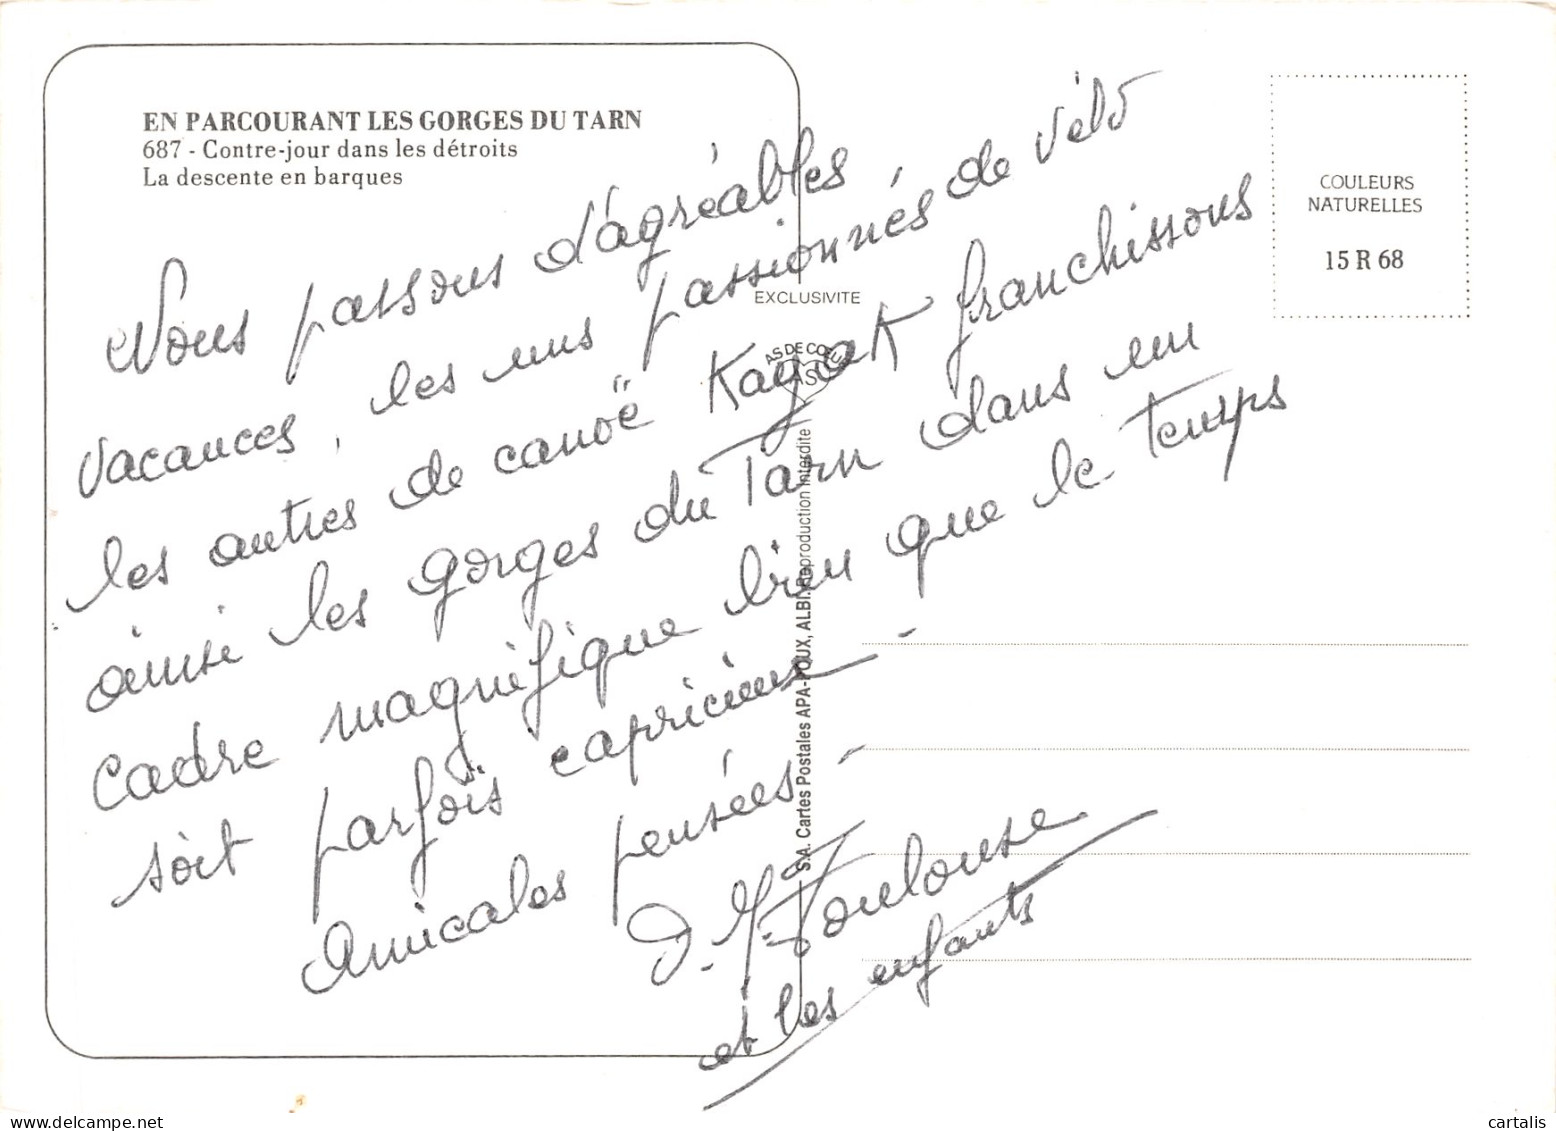 EN PARCOURANT LES GORGES DU TARN
687 - Contre-jour dans les détroits
La descente en barques
COULEURS
NATURELLES
15 R 68
EXCLUSIVITE
AS DE CŒUR
S.A. Cartes Postales APA-POUX, ALBI. Reproduction interdite
Nous passons d'agréables
vacances, les uns passionnés de vélo
les autres de canoë Kayak franchissons
ainsi les gorges du Tarn dans un
cadre magnifique bien que le temps
soit parfois capricieux -
Amicales pensées -
J. Toulouse
et les enfants
cartalis